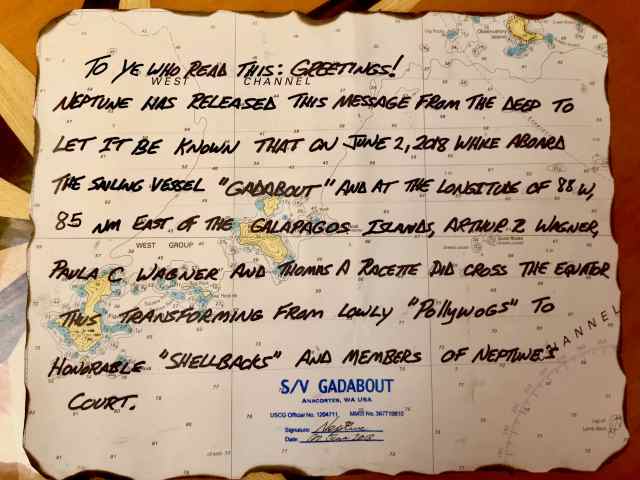 TO YE WHO READ THIS: GREETINGS!
WEST CHANNEL
NEPTUNE HAS RELEASED THIS MESSAGE FROM THE DEEP TO
LET IT BE KNOWN THAT ON JUNE 2, 2018 WHILE ABOARD
THE SAILING VESSEL "GADABOUT" AND AT THE LONGITUDE OF 88 W,
85 NM EAST OF THE GALAPAGOS ISLANDS, ARTHUR R WAGNER,
WEST GROUP
PAULA C WAGNER AND THOMAS A RACETTE DID CROSS THE EQUATOR
THUS TRANSFORMING FROM LOWLY "POLLYWOGS" TO
CHANNEL
HONORABLE "SHELLBACKS" AND MEMBERS OF NEPTUNE'S
COURT.
S/V GADABOUT
ANACORTES, WA USA
USCG Official No. 1204711, MMSI No. 367710810
Signature: Neptune
Date: